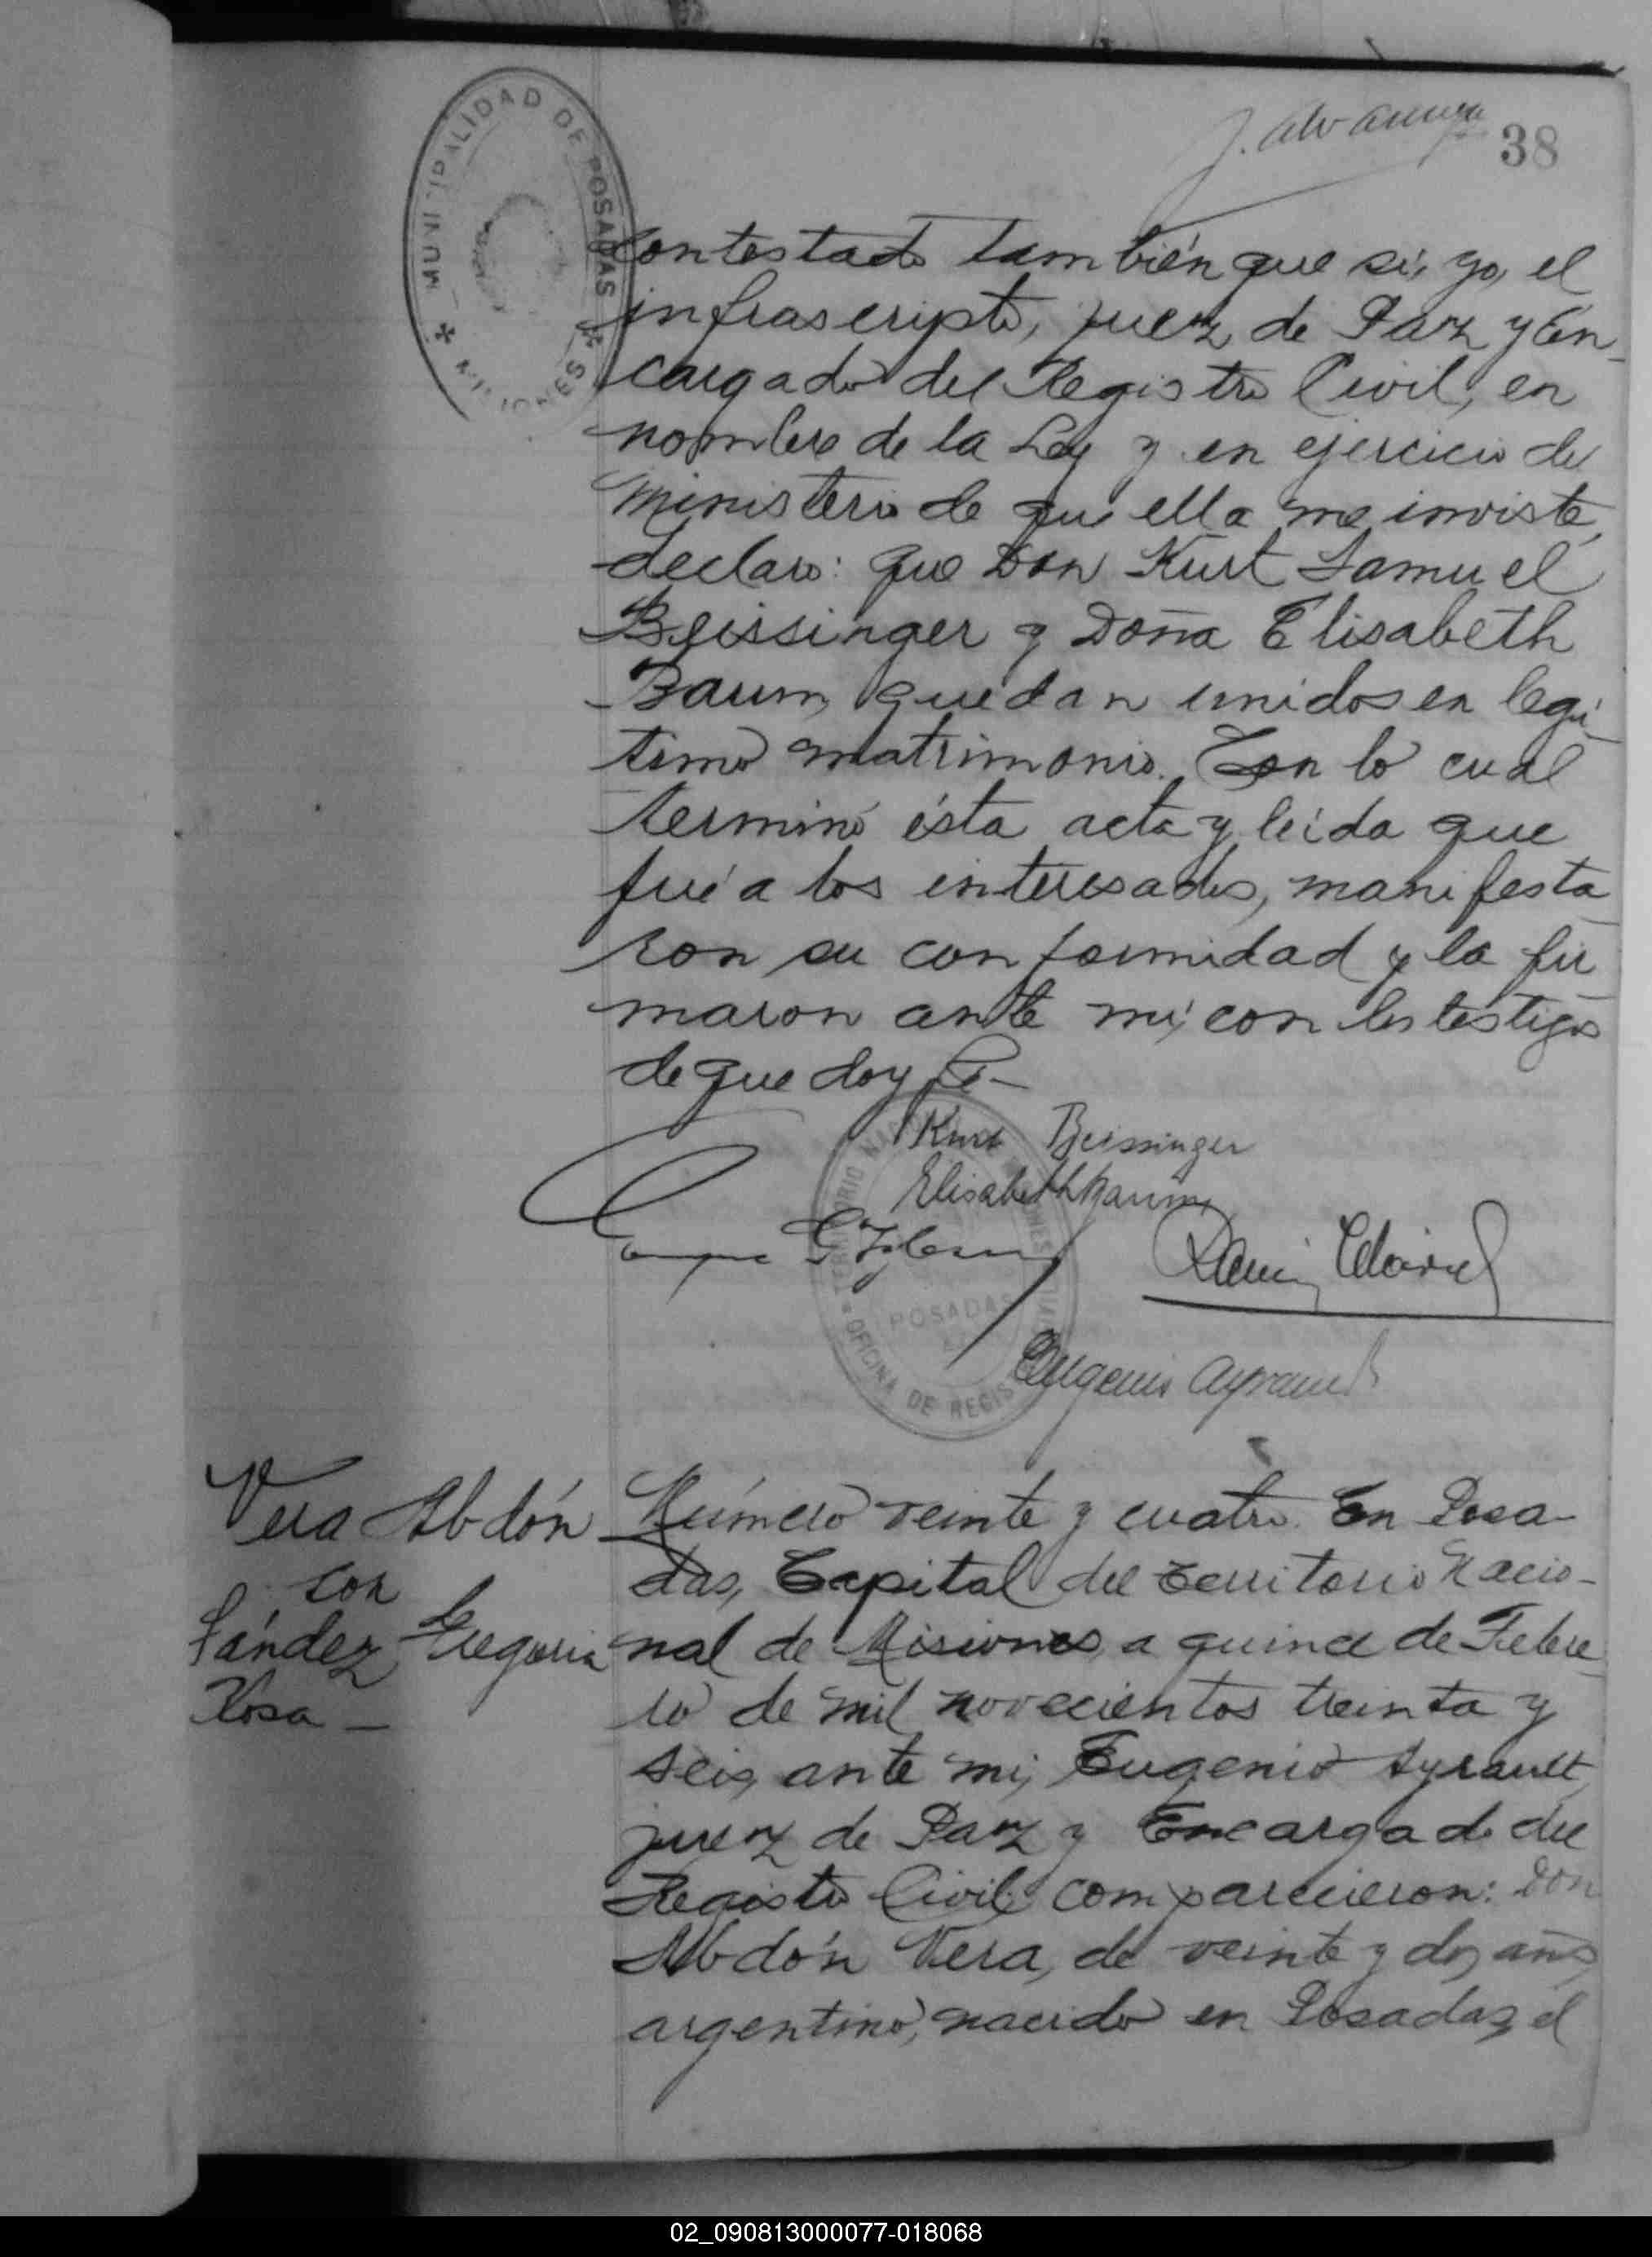 MUNICIPALIDAD DE POSADAS
MISIONES
38
contestado también que si, yo, el
infrascripto, juez de Paz y En-
cargado del Registro Civil, en
nombre de la Ley y en ejercicio del
ministerio de que ella me inviste,
declaro: que Don Kurt Samuel
Beissinger y Doña Elisabeth
Baum, quedan unidos en legí-
timo matrimonio. Con lo cual
terminó ésta acta y leída que
fué a los interesados, manifesta-
ron su conformidad y la fir-
maron ante mi, con los testigos
de que doy fé-
Kurt Beissinger
Elisabeth Baum
TERRITORIO NACIONAL DE MISIONES
POSADAS
OFICINA DE REGISTRO CIVIL
Eugenio Ayrault
Vera Abdón
con
Sández Gregoria
Rosa -
Número veinte y cuatro. En Posa-
das, Capital del Territorio Nacio-
nal de Misiones, a quince de Febre-
ro de mil novecientos treinta y
seis, ante mi, Eugenio Ayrault,
juez de Paz y Encargado del
Registro Civil, comparecieron: Don
Abdón Vera, de veinte y dos años,
argentino, nacido en Posadas, el
02_090813000077-018068